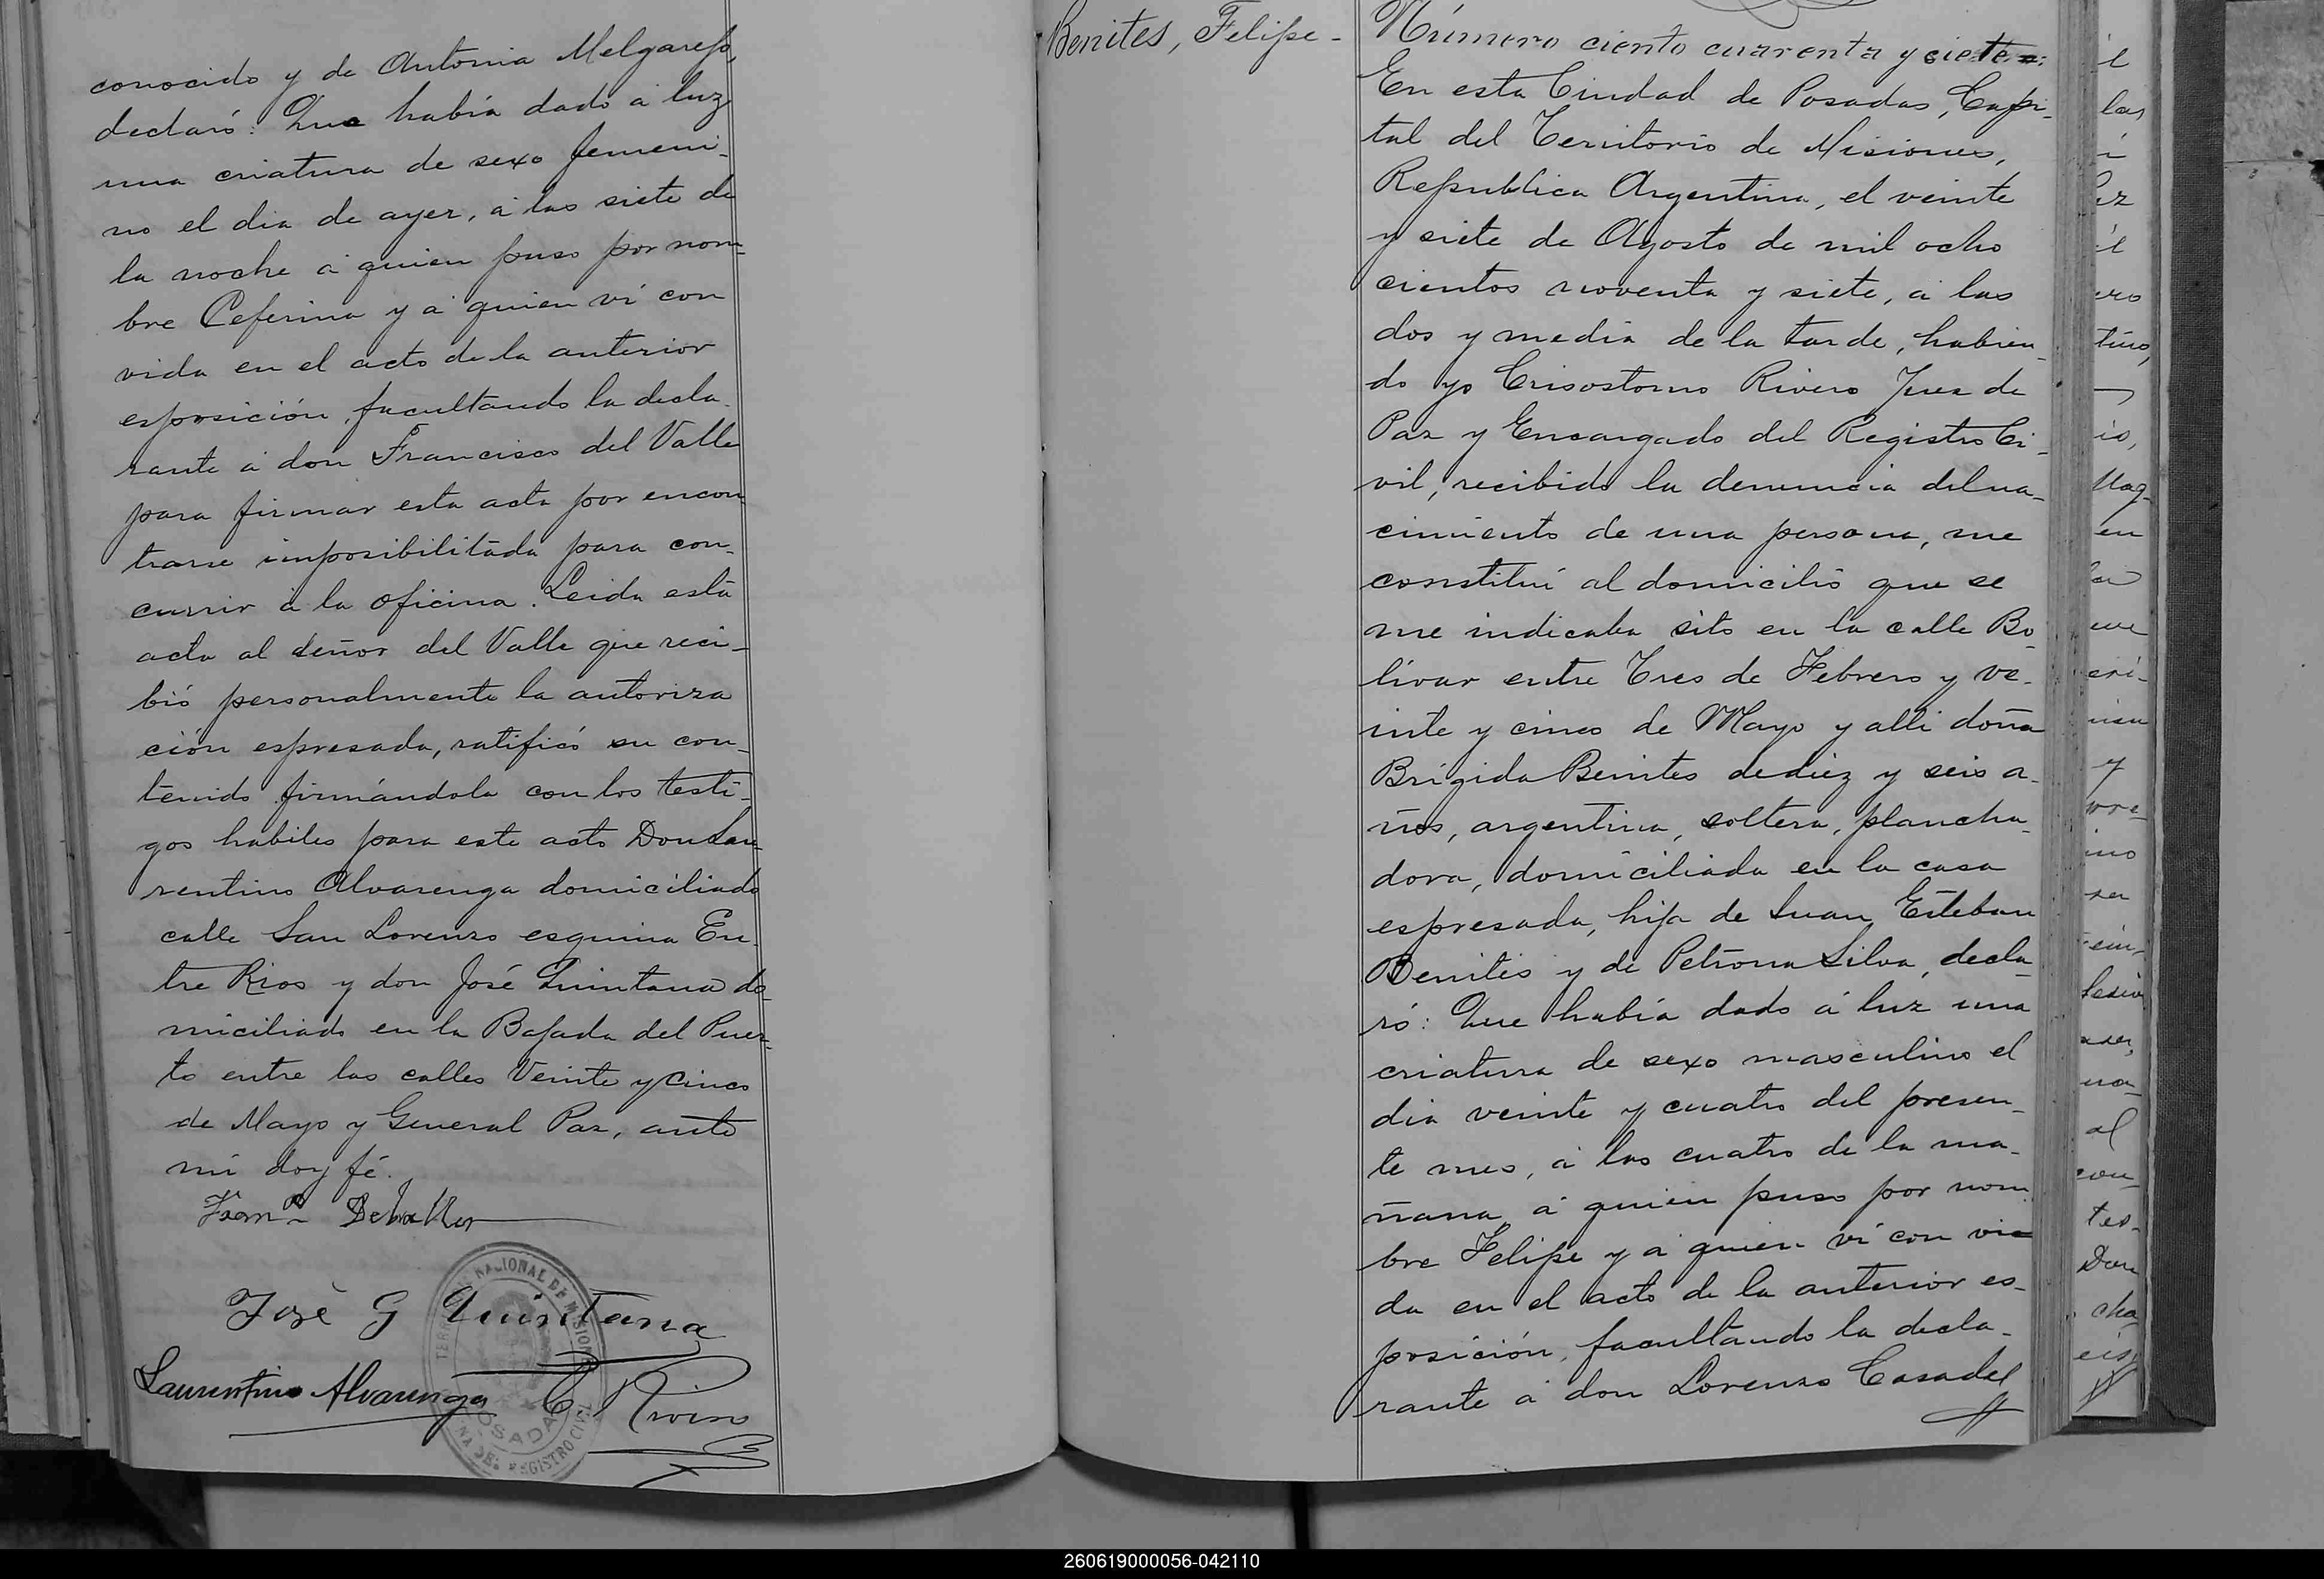 conocido y de Antonia Melgarejo,
declaró: Que había dado á luz
una criatura de sexo femeni-
no el dia de ayer, á las siete de
la noche á quien puso por nom-
bre Ceferina y á quien ví con
vida en el acto de la anterior
esposición, facultando la decla-
rante á don Francisco del Valle
para firmar esta acta por encon
trarse imposibilitada para con-
currir á la oficina. Leida esta
acta al señor del Valle que reci-
bió personalmente la autoriza
ción espresada, ratificó su con-
tenido firmándola con los testi-
gos habiles para este acto Don Lau
rentino Alvarenga domiciliado
calle San Lorenzo esquina En-
tre Rios y don José Quintana do-
miciliado en la Bajada del Puer-
to entre las calles Veinte y Cinco
de Mayo y General Paz, ante
mi doy fé.
José G Quintana
Laurentino Alvarenga C. Rivero
TERRITORIO NACIONAL DE MISIONES
POSADAS
OFICINA DEL REGISTRO CIVIL
Benites, Felipe-
Número ciento cuarenta y siete:
En esta Ciudad de Posadas, Capi-
tal del Territorio de Misiones,
Republica Argentina, el veinte
y siete de Agosto de mil ocho
cientos noventa y siete, á las
dos y media de la tarde, habien-
do yo Crisostomo Rivero Juez de
Paz y Encargado del Registro Ci-
vil, recibido la denuncia del na-
cimiento de una persona, me
constituí al domicilio que se
me indicaba sito en la calle Bo-
lívar entre Tres de Febrero y ve-
inte y cinco de Mayo y alli doña
Brígida Benites de diez y seis a-
ños, argentina, soltera, plancha-
dora, domiciliada en la casa
espresada, hija de Juan Esteban
Benites y de Petrona Silva, decla-
ró: Que había dado á luz una
criatura de sexo masculino el
dia veinte y cuatro del presen-
te mes, á las cuatro de la ma-
ñana á quien puso por nom
bre Felipe y á quien ví con vi
da en el acto de la anterior es-
posición, facultando la decla-
rante á don Lorenzo Casadel
260619000056-042110